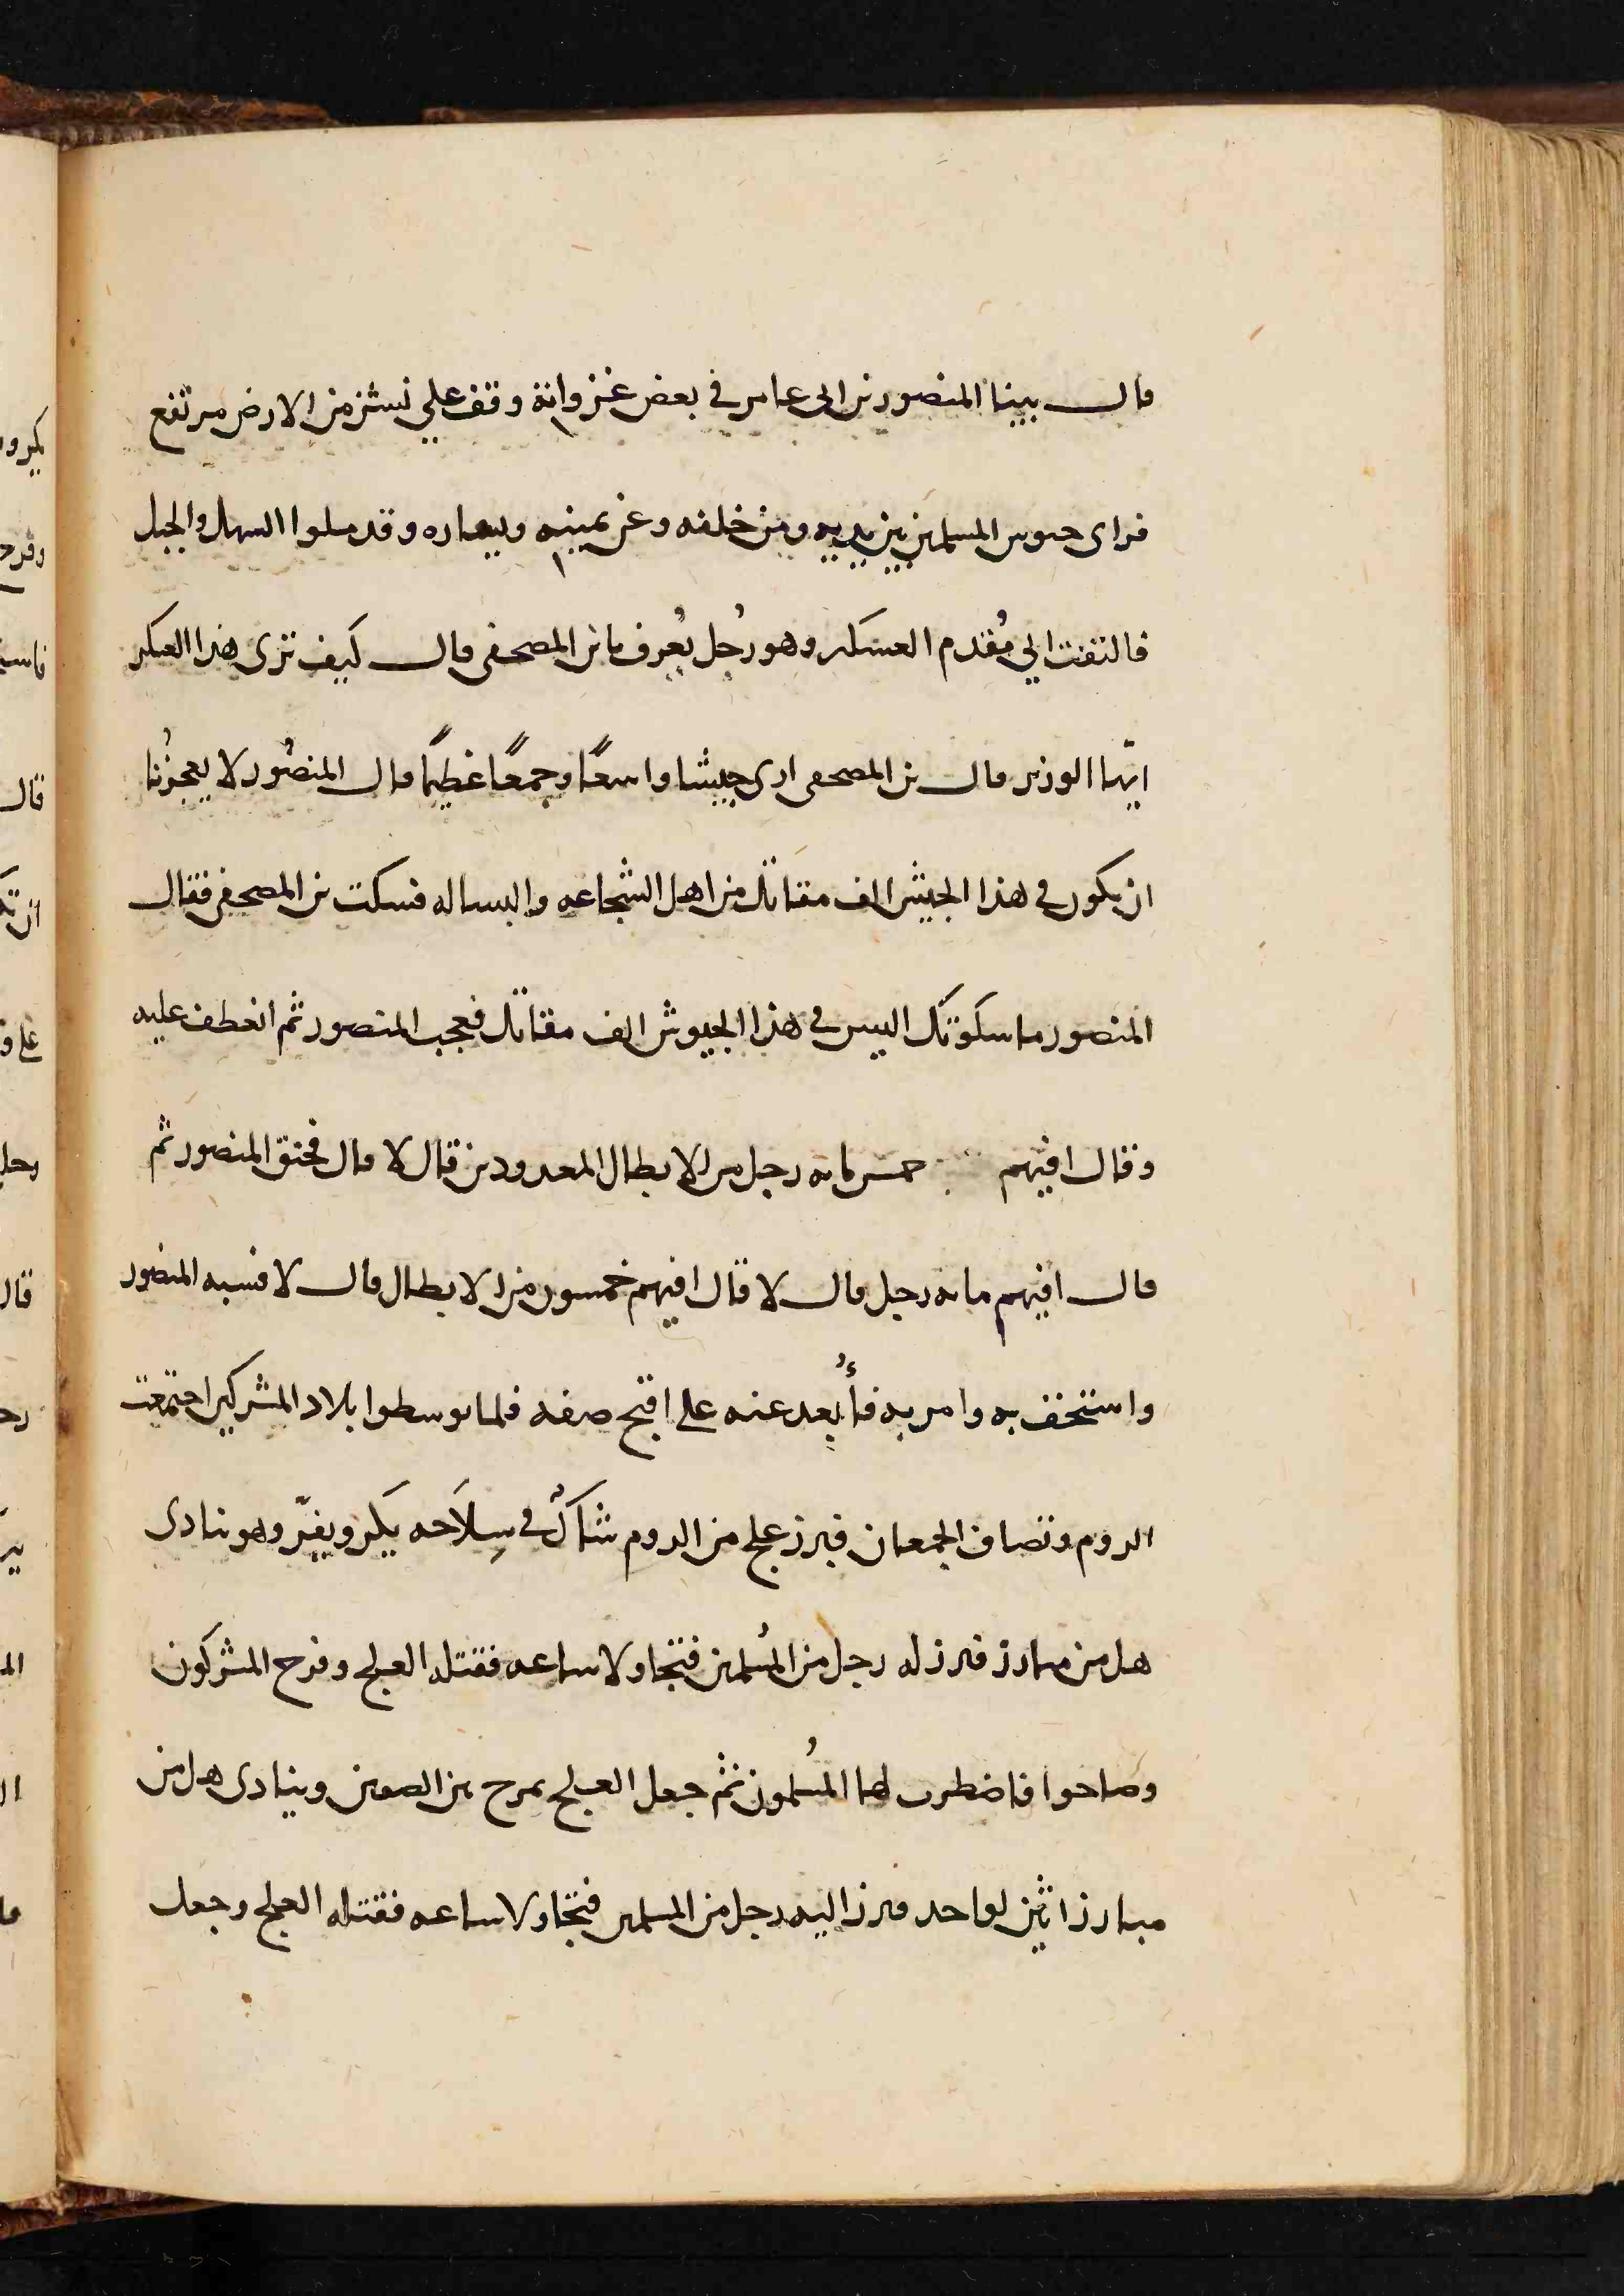 قال بينا المنصور بن ابى عامر في بعض غزواته وقف علي نشز من الارض مرتفع
فراى جيوش المسلمين بين يديه ومن خلفه وعن يمينه ويساره وقد ملوا السهل والجبل
فالتفت الي مُقدم العسكر وهو رُجل يُعرف بابن المصحفى قال كيف ترى هذا العسكر
ايّها الوزير قال بن المصحفى ارى جيشا واسعًا وجمعًا عظيمًا قال المنصُور لا يعجزُنا
ان يكون في هذا الجيش الف مقاتل من اهل الشجاعه والبساله فسكت بن المصحفى فقال
المنصور ما سكوتك اليس في هذا الجيوش الف مقاتل فعجب المنصور ثم انعطف عليه
وقال افيهم خمس مايه رجل من الابطال المعدودين قال لا قال فحنق المنصور ثم
قال افيهم مايه رجل قال لا قال افيهم خمسون من الابطال قال لا فسبه المنصور
واستخف به وامر به فأُبعد عنه على اقبح صفه فلما توسطوا بلاد المشركين اجتمعت
الروم وتصاف الجمعان فبرز علج من الروم شاكٌ في سِلَاحه يكر ويفرّ وهو ينادى
هل من مبارز فبرز له رجل من المُسلمين فتجاولا ساعه فقتله العلج وفرح المشركون
وصاحوا فاضطرب لها المُسلمون ثم جعل العلج يمرح بين الصفين وينادى هل من
مبارز اثنين لواحد فبرز اليه رجل من المسلمين فتجاولا ساعه فقتله العلج وجعل